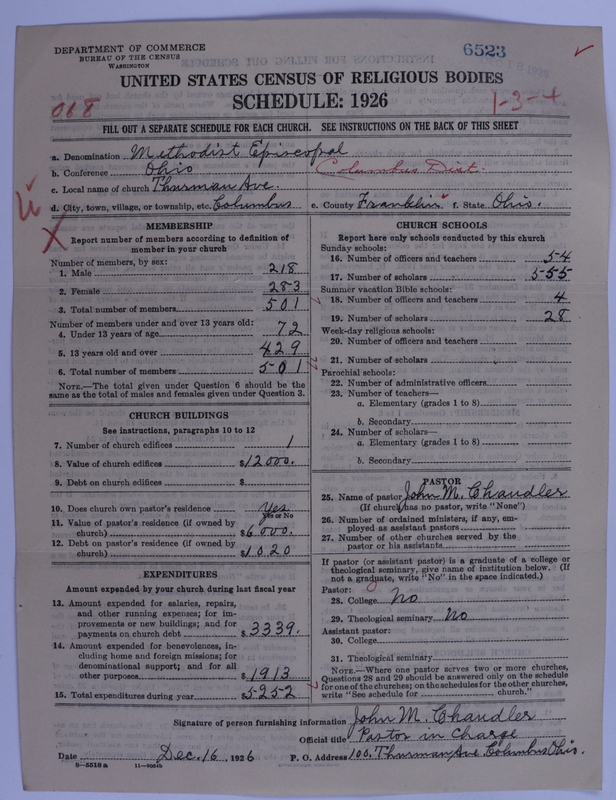 DEPARTMENT OF COMMERCE
BUREAU OF THE CENSUS
WASHINGTON
6523
UNITED STATES CENSUS OF RELIGIOUS BODIES
SCHEDULE: 1926
068
1-3-4
FILL OUT A SEPARATE SCHEDULE FOR EACH CHURCH. SEE INSTRUCTIONS ON THE BACK OF THIS SHEET
a. Denomination Methodist Episcopal
b. Conference Ohio Columbus Dist.
c. Local name of church Thurman Ave.
d. City, town, village, or township, etc. Columbus e. County Franklin f. State Ohio.
MEMBERSHIP
Report number of members according to definition of
member in your church
Number of members, by sex:
1. Male 218
2. Female 283
3. Total number of members 501
Number of members under and over 13 years old:
4. Under 13 years of age 72
5. 13 years old and over 429
6. Total number of members 501
NOTE.—The total given under Question 6 should be the
same as the total of males and females given under Question 3.
CHURCH BUILDINGS
See instructions, paragraphs 10 to 12
7. Number of church edifices 1
8. Value of church edifices $12000.
9. Debt on church edifices $
10. Does church own pastor's residence Yes
Yes or No
11. Value of pastor's residence (if owned by
church) $6000.
12. Debt on pastor's residence (if owned by
church) $1020
EXPENDITURES
Amount expended by your church during last fiscal year
13. Amount expended for salaries, repairs,
and other running expenses; for im-
provements or new buildings; and for
payments on church debt $3339.
14. Amount expended for benevolences, in-
cluding home and foreign missions; for
denominational support; and for all
other purposes $1913
15. Total expenditures during year $5252
CHURCH SCHOOLS
Report here only schools conducted by this church
Sunday schools:
16. Number of officers and teachers 54
17. Number of scholars 555
Summer vacation Bible schools:
18. Number of officers and teachers 4
19. Number of scholars 28
Week-day religious schools:
20. Number of officers and teachers
21. Number of scholars
Parochial schools:
22. Number of administrative officers
23. Number of teachers—
a. Elementary (grades 1 to 8)
b. Secondary
24. Number of scholars—
a. Elementary (grades 1 to 8)
b. Secondary
PASTOR
25. Name of pastor John M. Chandler
(If church has no pastor, write "None")
26. Number of ordained ministers, if any, em-
ployed as assistant pastors
27. Number of other churches served by the
pastor or his assistants
If pastor (or assistant pastor) is a graduate of a college or
theological seminary, give name of institution below. (If
not a graduate, write "No" in the space indicated.)
Pastor:
28. College No
29. Theological seminary No
Assistant pastor:
30. College
31. Theological seminary
NOTE.—Where one pastor serves two or more churches,
Questions 28 and 29 should be answered only on the schedule
for one of the churches; on the schedules for the other churches,
write "See schedule for church."
Signature of person furnishing information John M. Chandler
Official title Pastor in Charge
Date Dec. 16, 1926 P. O. Address 100. Thurman Ave Columbus Ohio.
8—5518a 11—9054b